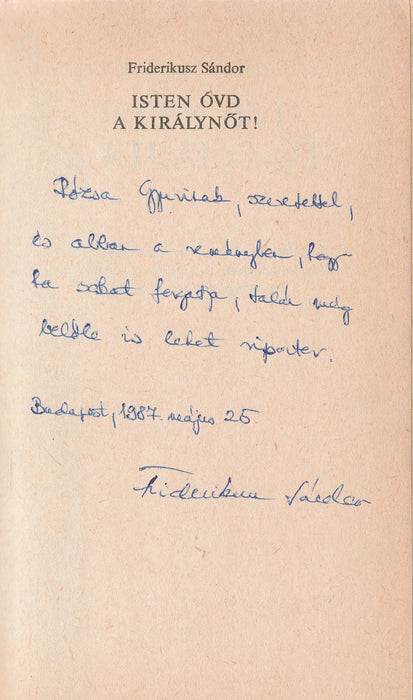 Friderikusz Sándor
ISTEN ÓVD
A KIRÁLYNŐT!
Rózsa Gyurinak, szeretettel,
és abban a reményben, hogy
ha sokat forgatja, talán még
belőle is lehet riporter.
Budapest, 1987. május 25.
Friderikusz Sándor